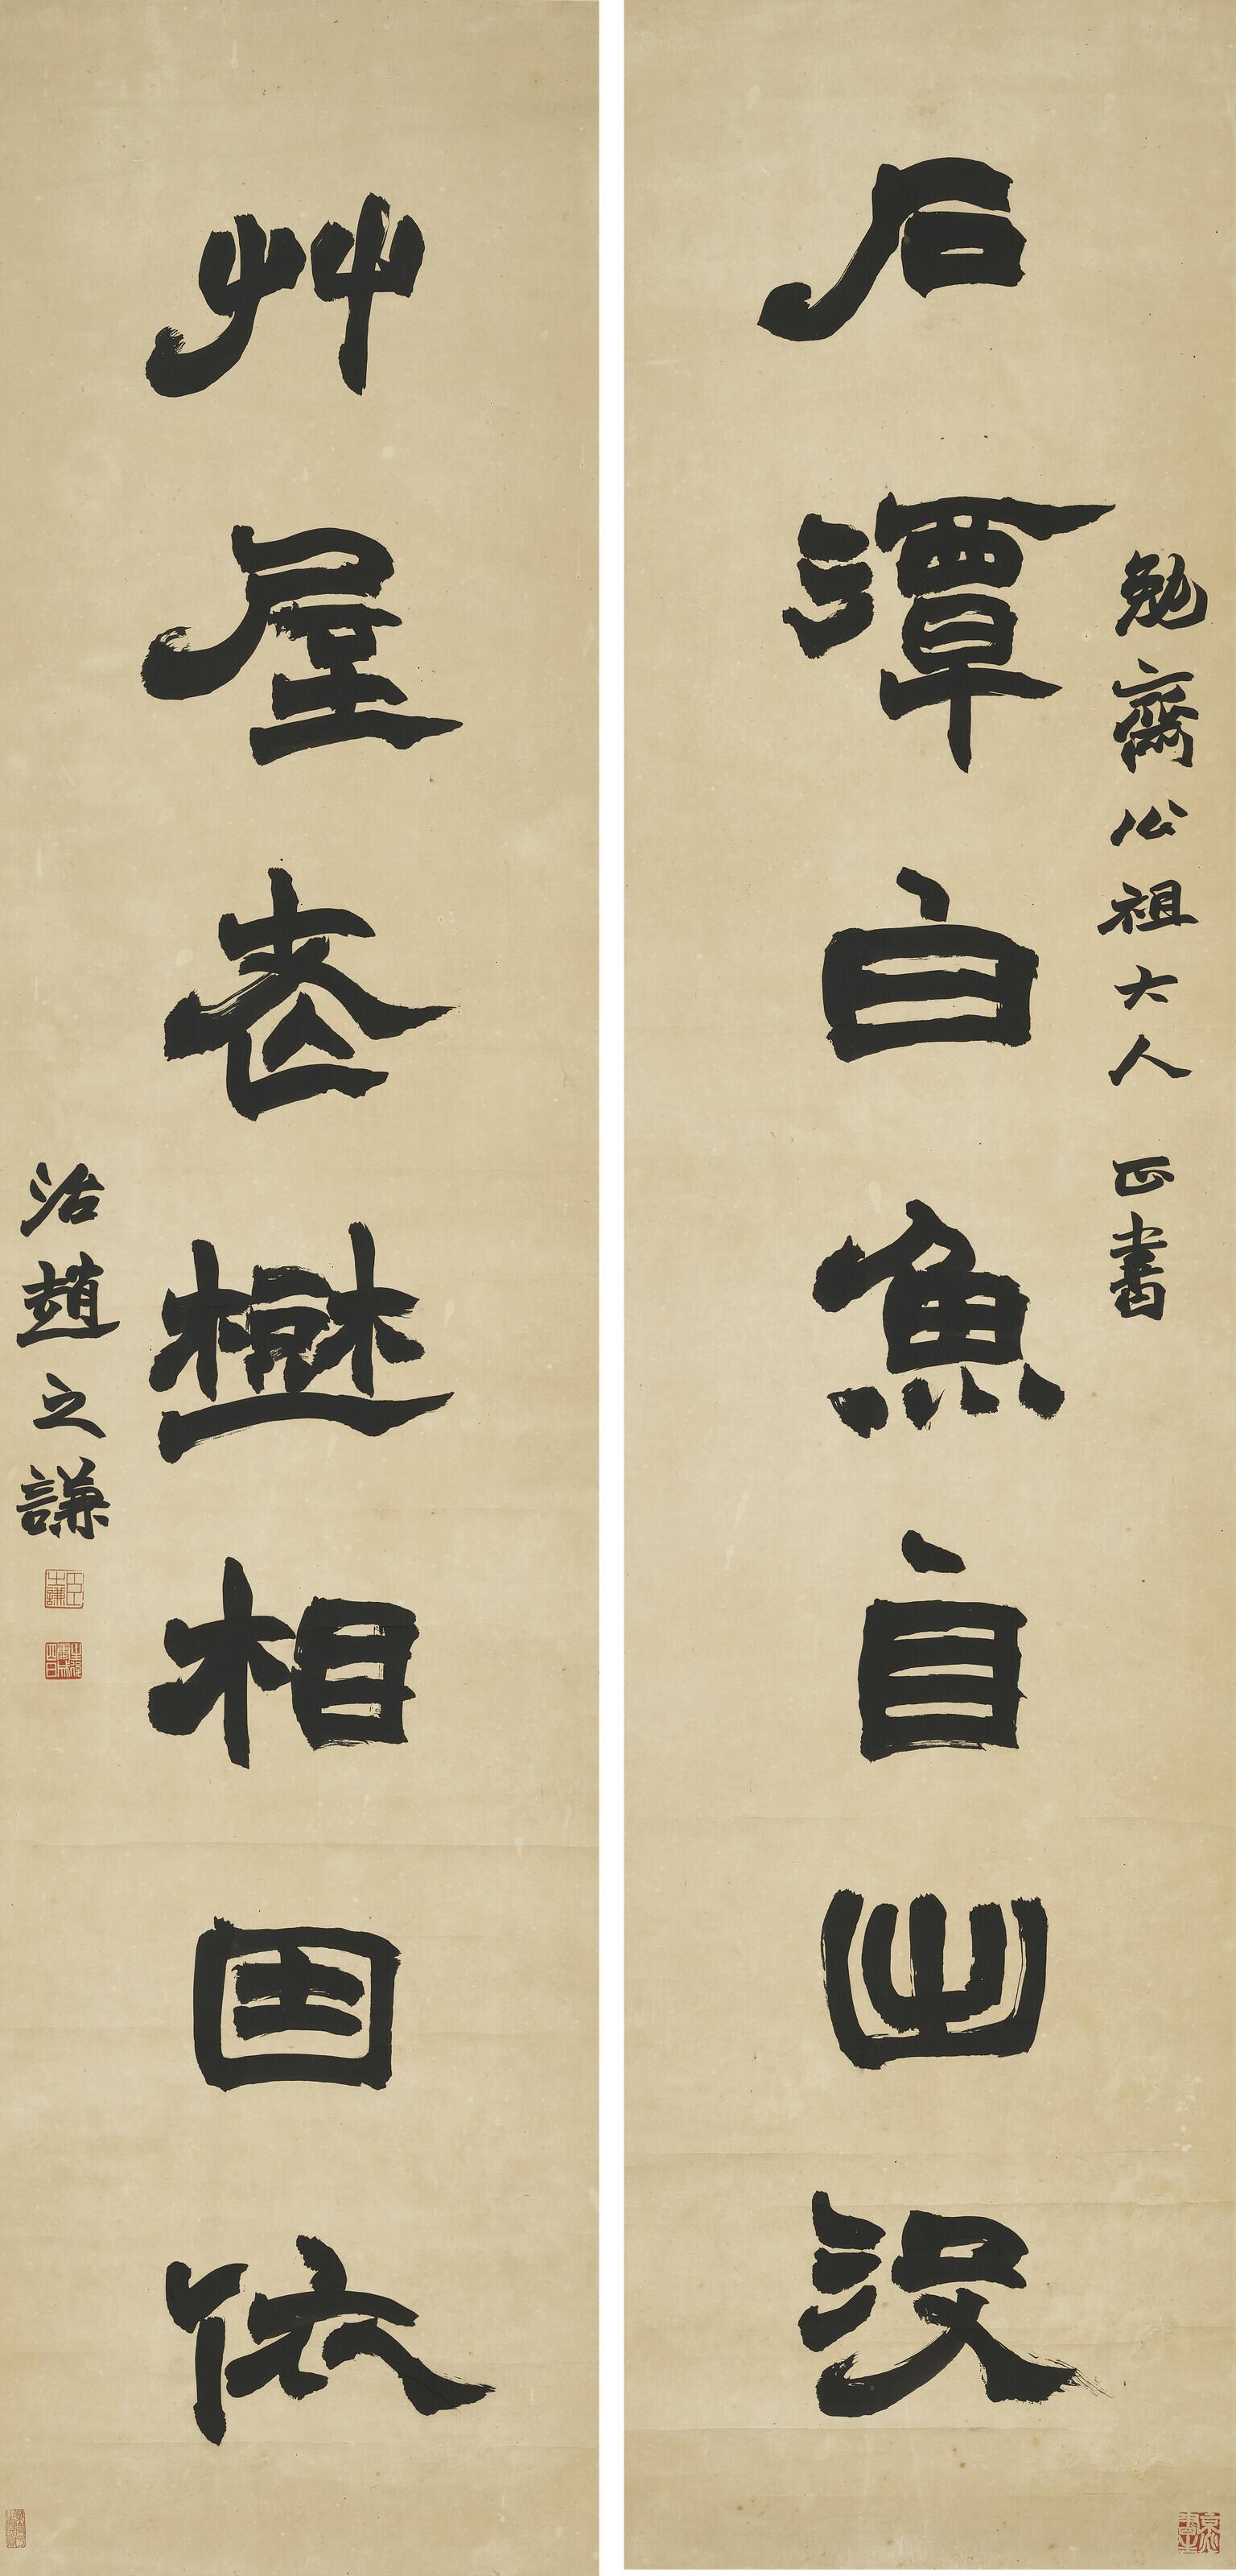 勉齋公祖大人 正書
石潭白魚自出沒
艸屋老相因依
治趙之謙
臣之謙